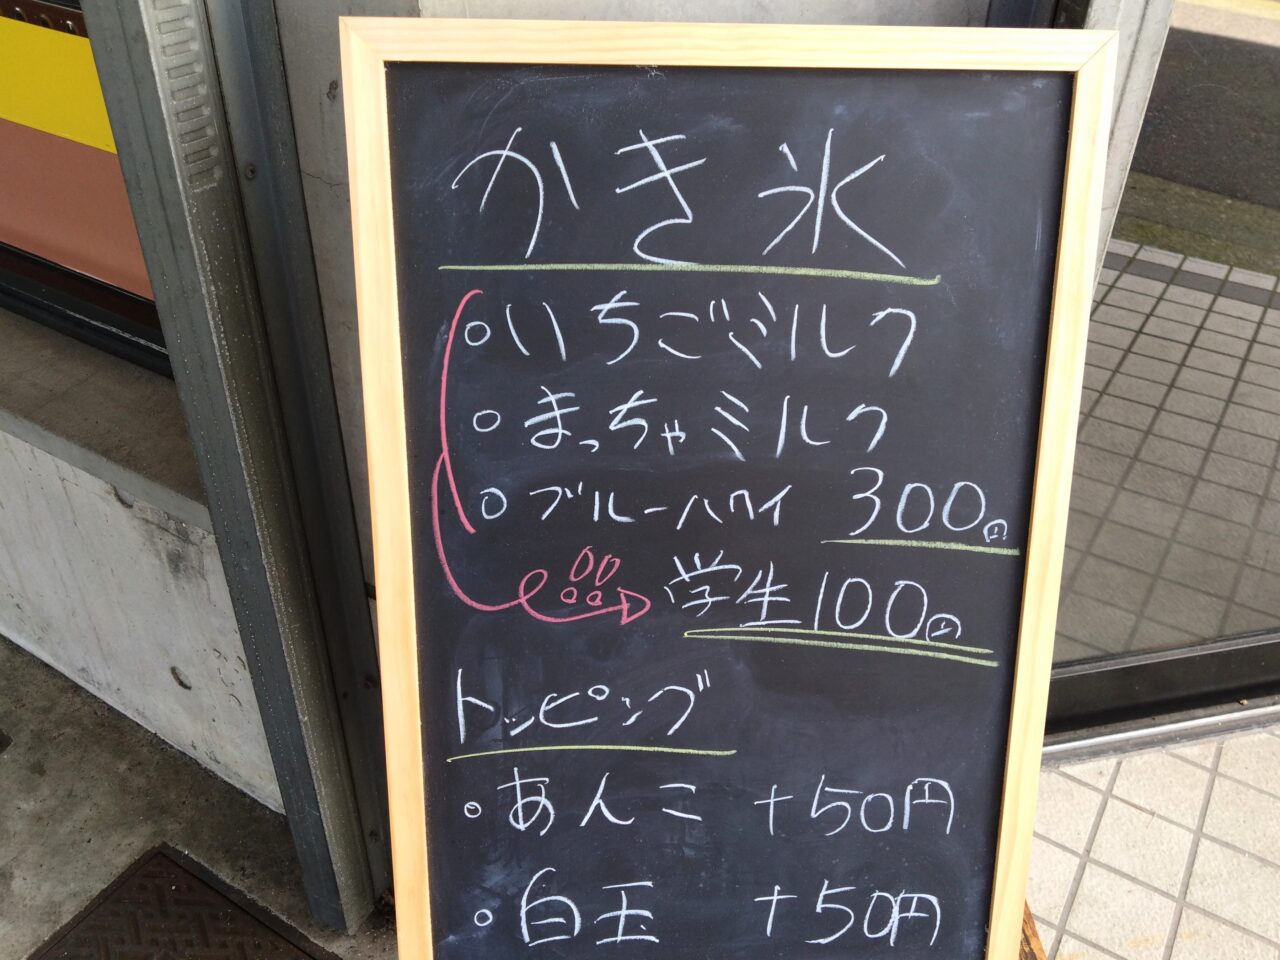 かき氷
○いちごミルク
○まっちゃミルク
○ブルーハワイ 300円
学生100円
トッピング
○あんこ +50円
○白玉 +50円